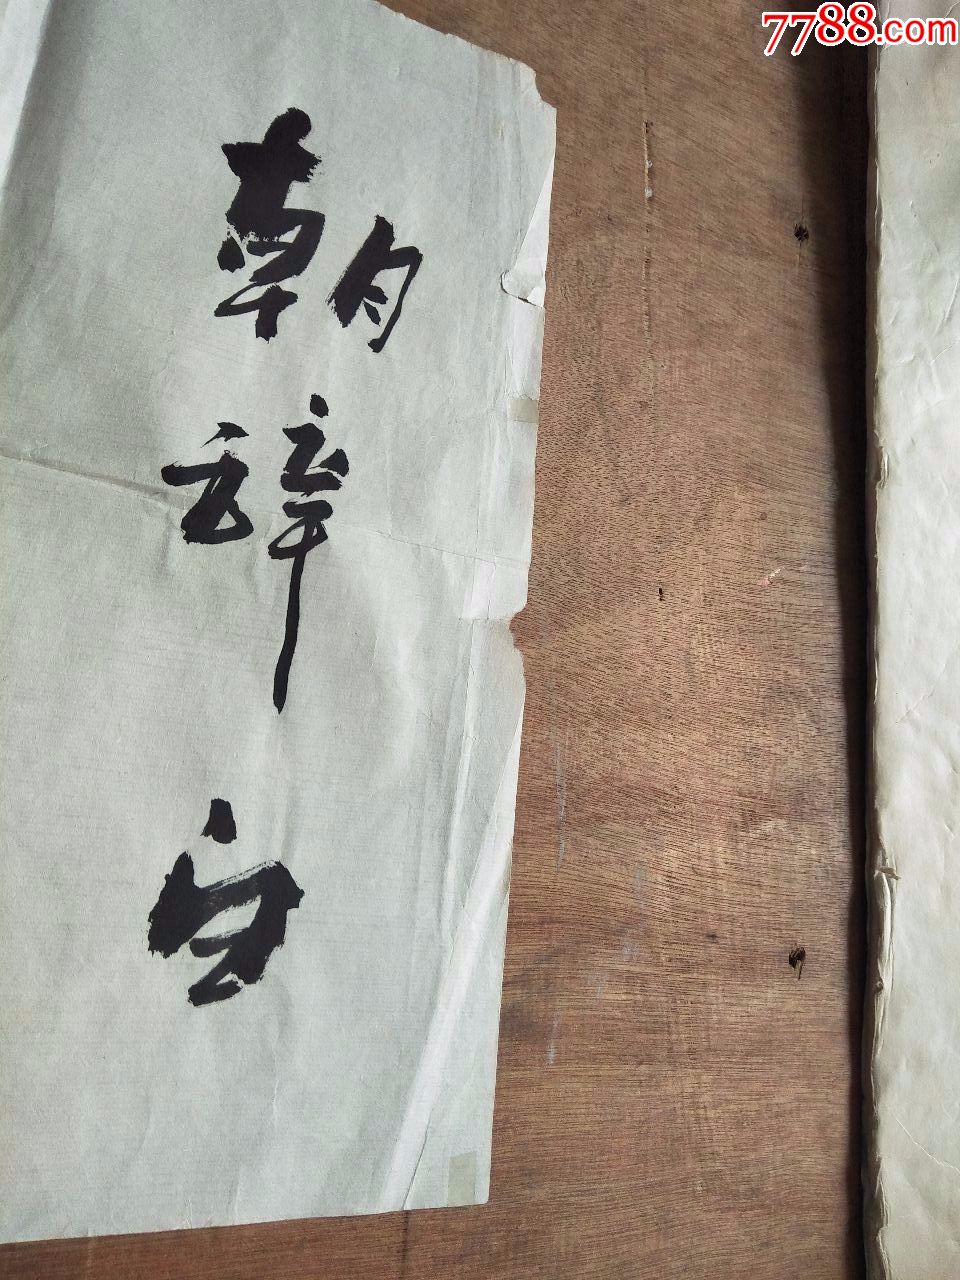 7788.com
朝辞白